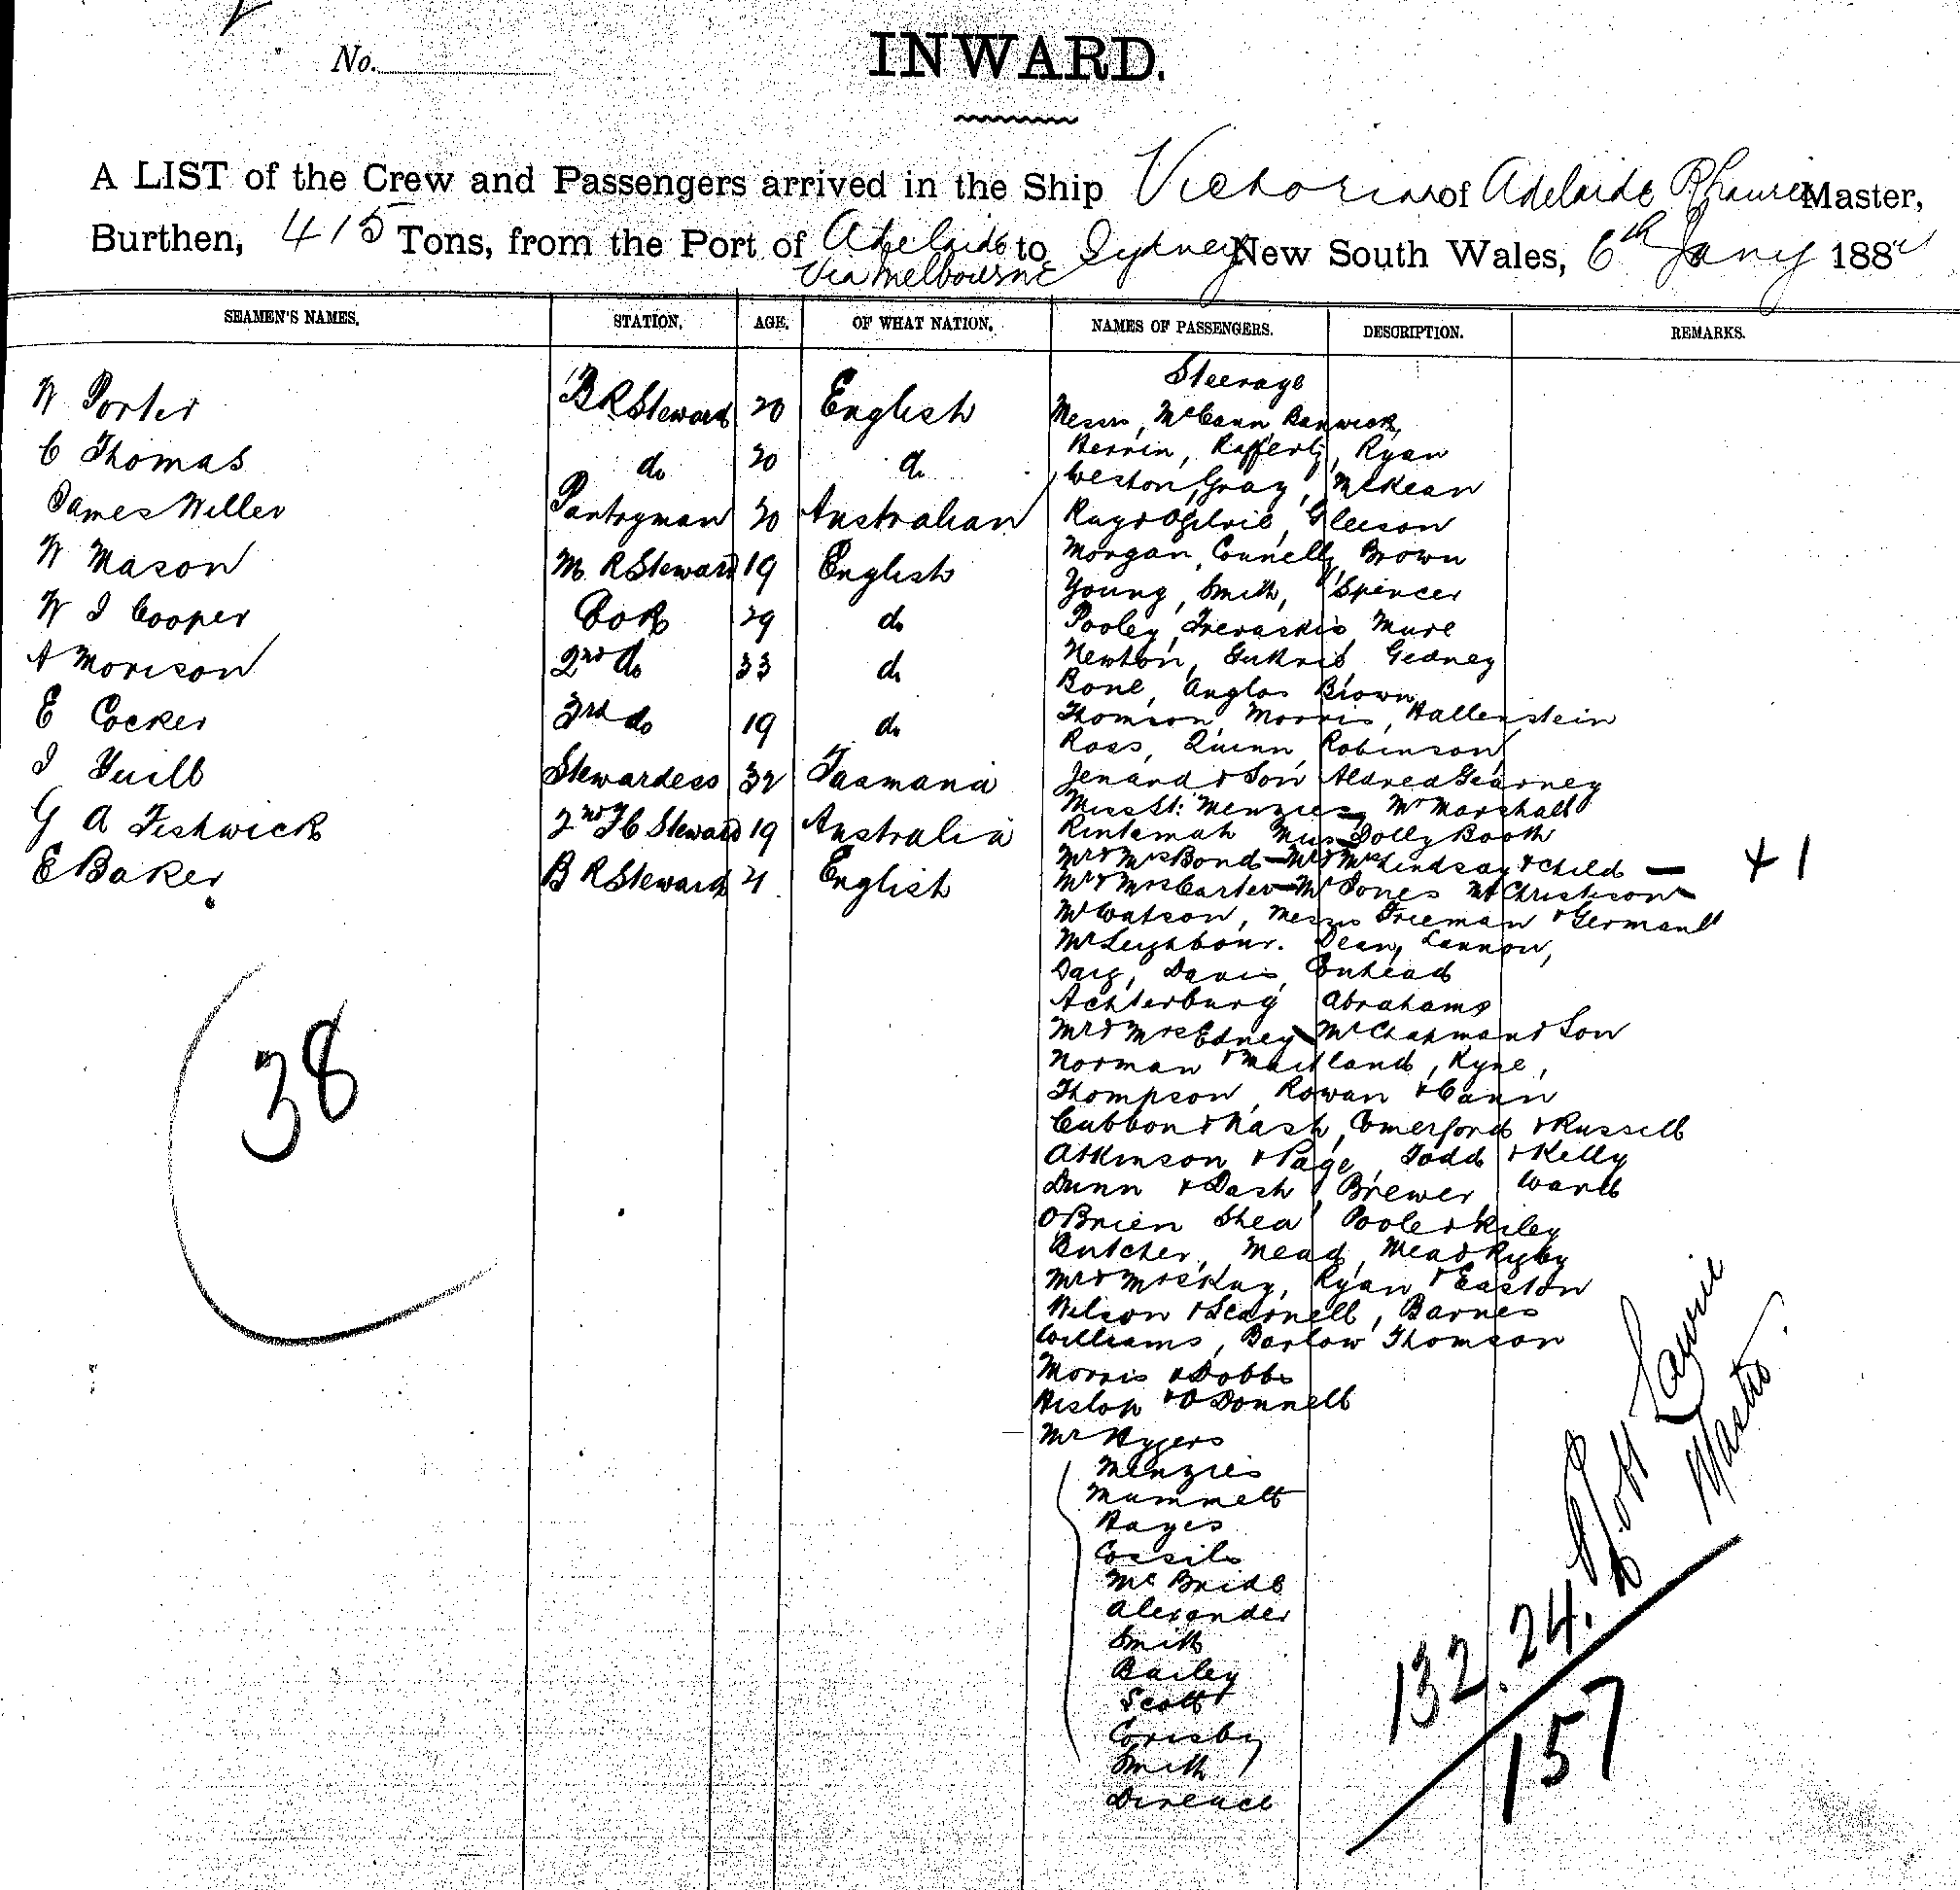 No.
INWARD.
A LIST of the Crew and Passengers arrived in the Ship Victorian of Adelaide Master,
Burthen, 415 Tons, from the Port of Adelaide to Sydney New South Wales, 6th Jany 188
Via Melbourne
SEAMEN'S NAMES. STATION. AGE. OF WHAT NATION. NAMES OF PASSENGERS. DESCRIPTION. REMARKS.
Steerage
W Porter B R Steward 20 English
C Thomas do 20 do
James Miller Pantryman 20 Australian
W Mason M R Steward 19 English
W J Cooper Cook 29 do
A Morison 2nd do 33 do
E Cocker 3rd do 19 do
J Yuill Stewardess 32 Tasmania
G A Fishwick 2nd F C Steward 19 Australia
E Baker B R Steward 21 English
38
Messrs, McCann, Banwick,
Herrin, Rafferty, Ryan
Weston, Gray, McKean
Ray & Ogilvie, Gleeson
Morgan, Connelly, Brown
Young, Smith, Spencer
Pooley, Trevaskis, Mure
Newton, Guthrie, Gedney
Bone, Anglos Brown
Thomson, Morris, Hallenstein
Ross, Quinn, Robinson
& Son
Miss St. Menzies, Mr Marshall
Miss Dolly Booth
Mr & Mrs Bond - Mr & Mrs Lindsay & Child - + 1
Mr & Mrs Carter - Mr Jones Mr Christison
Mr Watson, Messrs Freeman &
Mr Leighbour. Dean, Lannon,
Daig, Davis,
Achterburg Abrahams
Mr & Mrs Edney Mr Chapman & Son
Norman & Maitland, Kyne,
Thompson, Rowan & Cann
Cubbon & Nash, Comerford & Russell
Atkinson & Page, Todd & Kelly
Dunn & Dash, Brewer Ward
O'Brien Shea Poole & Riley
Butcher, Mead, Mead & Rigby
Mr & Mrs Kay, Ryan & Easton
Wilson & Scarnell, Barnes
Williams, Barlow Thomson
Morris & Dobbs
Hislop & O'Donnell
Mr Hygers
Menzies
Mummett
Hayes
McBride
Alexander
Smith
Bailey
Scott
Corisby
Smith
Robt Lawrie
Master.
132. 24.
157